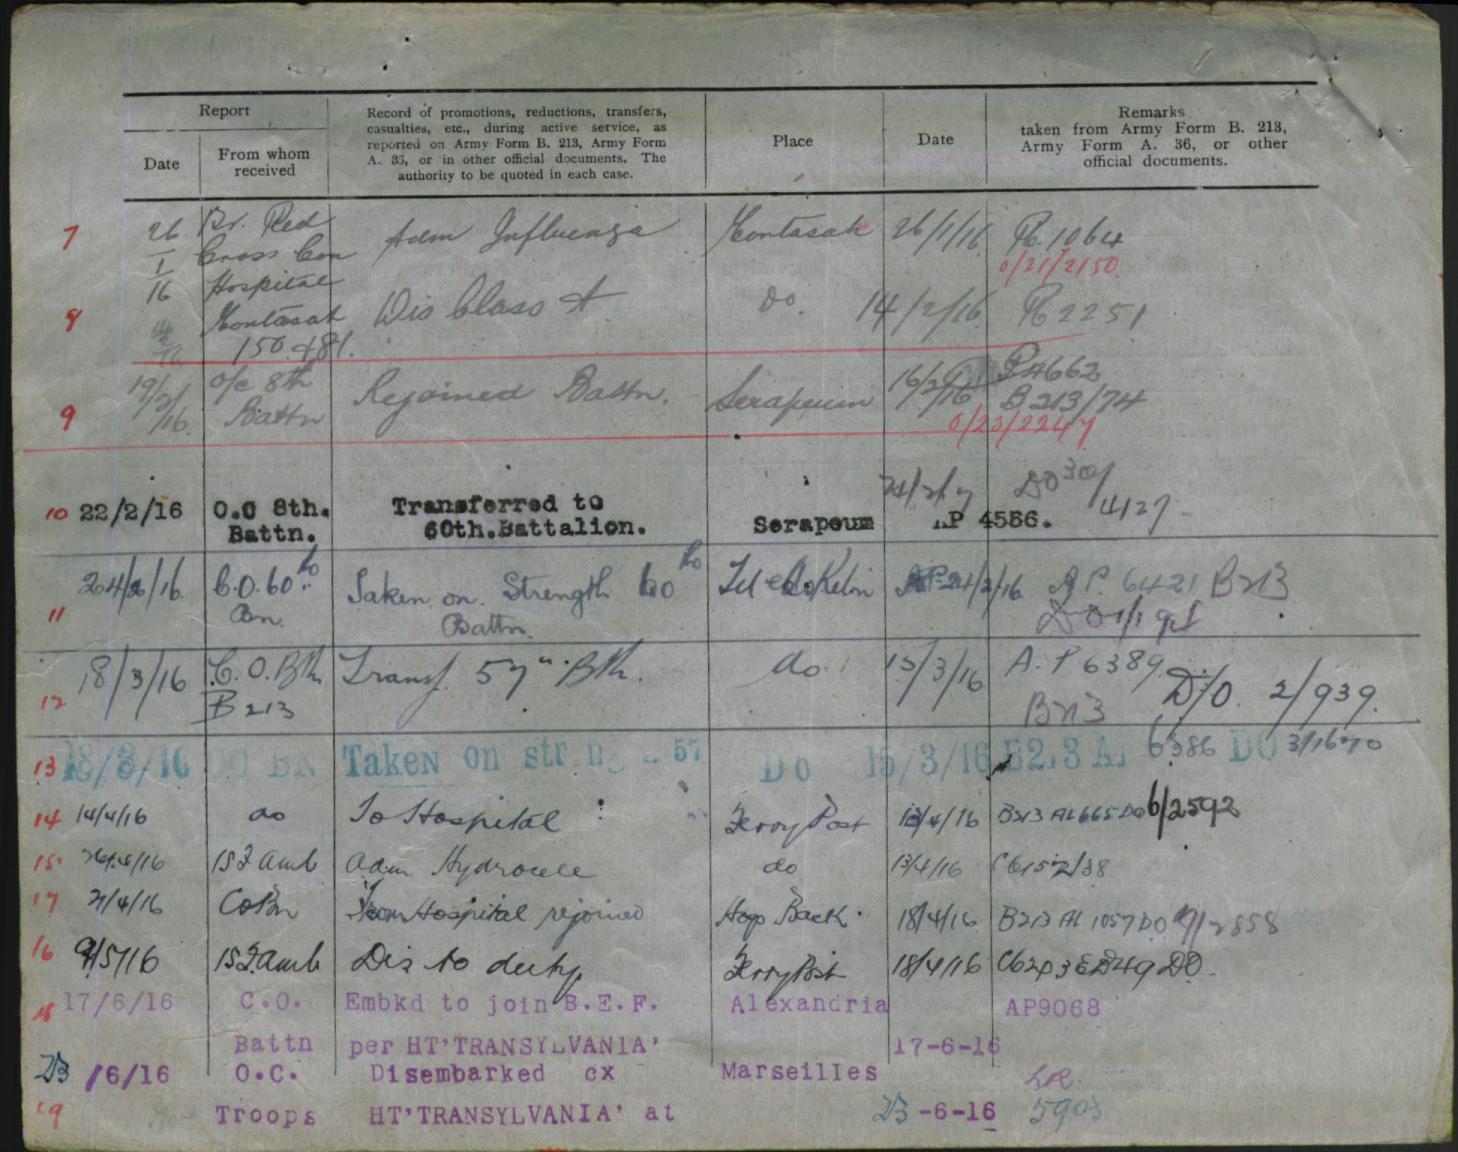 Report
Date
From whom
received
Record of promotions, reductions, transfers,
casualties, etc., during active service, as
reported on Army Form B. 213, Army Form
A. 36, or in other official documents. The
authority to be quoted in each case.
Place
Date
Remarks
taken from Army Form B. 213,
Army Form A. 36, or other
official documents.
7 26/1/16 Br. Red Adm Influenza Montazah 26/1/16 1064
Cross Con 0/21/2150
Hospital
8 Montazah Dis Class A do. 14/2/16 2251
150 481.
9 19/2/16 o/c 8th Rejoined Battn. Serapeum 16/2/16 4662
Battn B213/74
0/23/2247
10 22/2/16 O.C 8th. Transferred to Serapeum DO 30/4127
Battn. 60th.Battalion. AP 4586.
11 24/2/16 C.O. 60th Taken on Strength 60th Tel el Kebir 24/2/16 A.P. 6421 B213
Bn. Battn.
12 18/3/16 C.O. Bth Transf. 57" Bth. do 15/3/16 A.P 6389 D/O. 2/939.
B213 B213
13 18/3/16 CO BN Taken on 57 Do 15/3/16 6386 DO 3/1670
14 14/4/16 do To Hospital Ferry Post 13/4/16 B213 6/2592
15 15 F amb adm Hydrocele do 13/4/16
17 21/4/16 Co Bn From Hospital rejoined Hog Back 18/4/16 B213 1057 DO
16 9/5/16 15 F. amb Dis to duty Ferry Post 18/4/16
18 17/6/16 C.O. Embkd to join B.E.F. Alexandria AP9068
Battn per HT'TRANSYLVANIA' 17-6-16
23/6/16 O.C. Disembarked ex Marseilles
19 Troops HT'TRANSYLVANIA' at 23-6-16